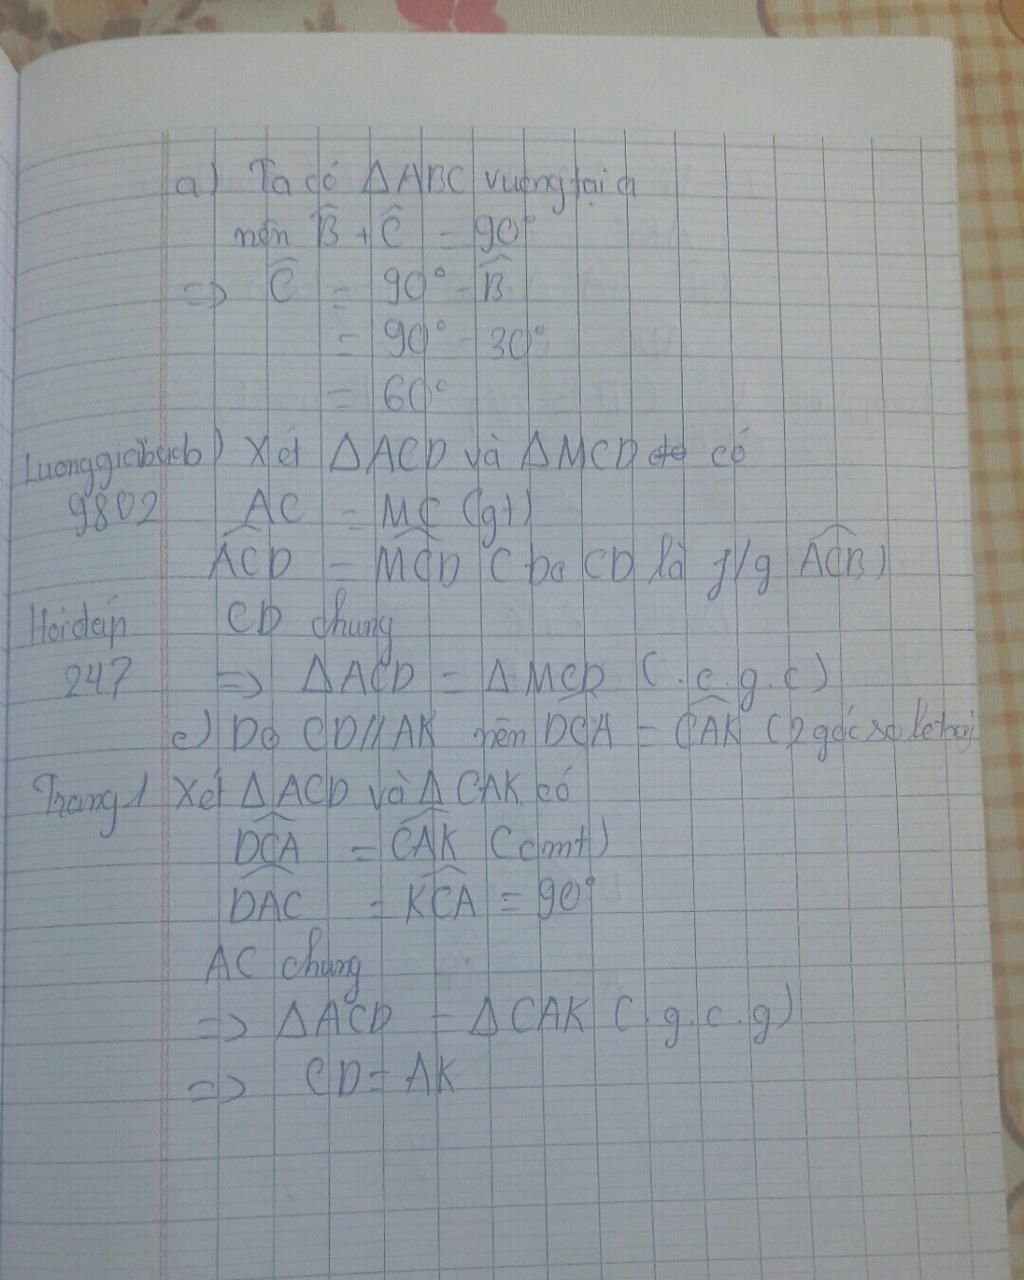 a) Ta có ΔABC vuông tại a
nên B̂ + Ĉ = 90°
=> Ĉ = 90° - B̂
= 90° - 30°
= 60°
Luonggiabach
9802
b) Xét ΔACD và ΔMCD có
AC = MC (gt)
ACD^ = MCD^ (do CD là f/g ACB^)
Hoidap
247
CD chung
=> ΔACD = ΔMCD (.c.g.c)
c) Do CD // AK nên DCA^ = CAK^ (2 góc so le
Trang 1
Xét ΔACD và ΔCAK có
DCA^ = CAK^ (cmt)
DAC^ = KCA^ = 90°
AC chung
=> ΔACD = ΔCAK (g.c.g)
=> CD = AK